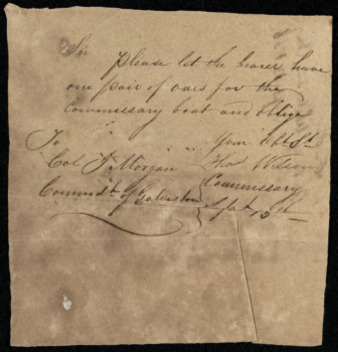 Sir
Please let the bearer have
one pair of oars for the
Commissary boat and oblige
Your Obt St
Thos Wilson
Commissary
Sept 15th
To
Col J. Morgan
Commdt of Galveston